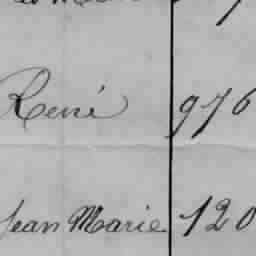 René 976
Jean Marie 120